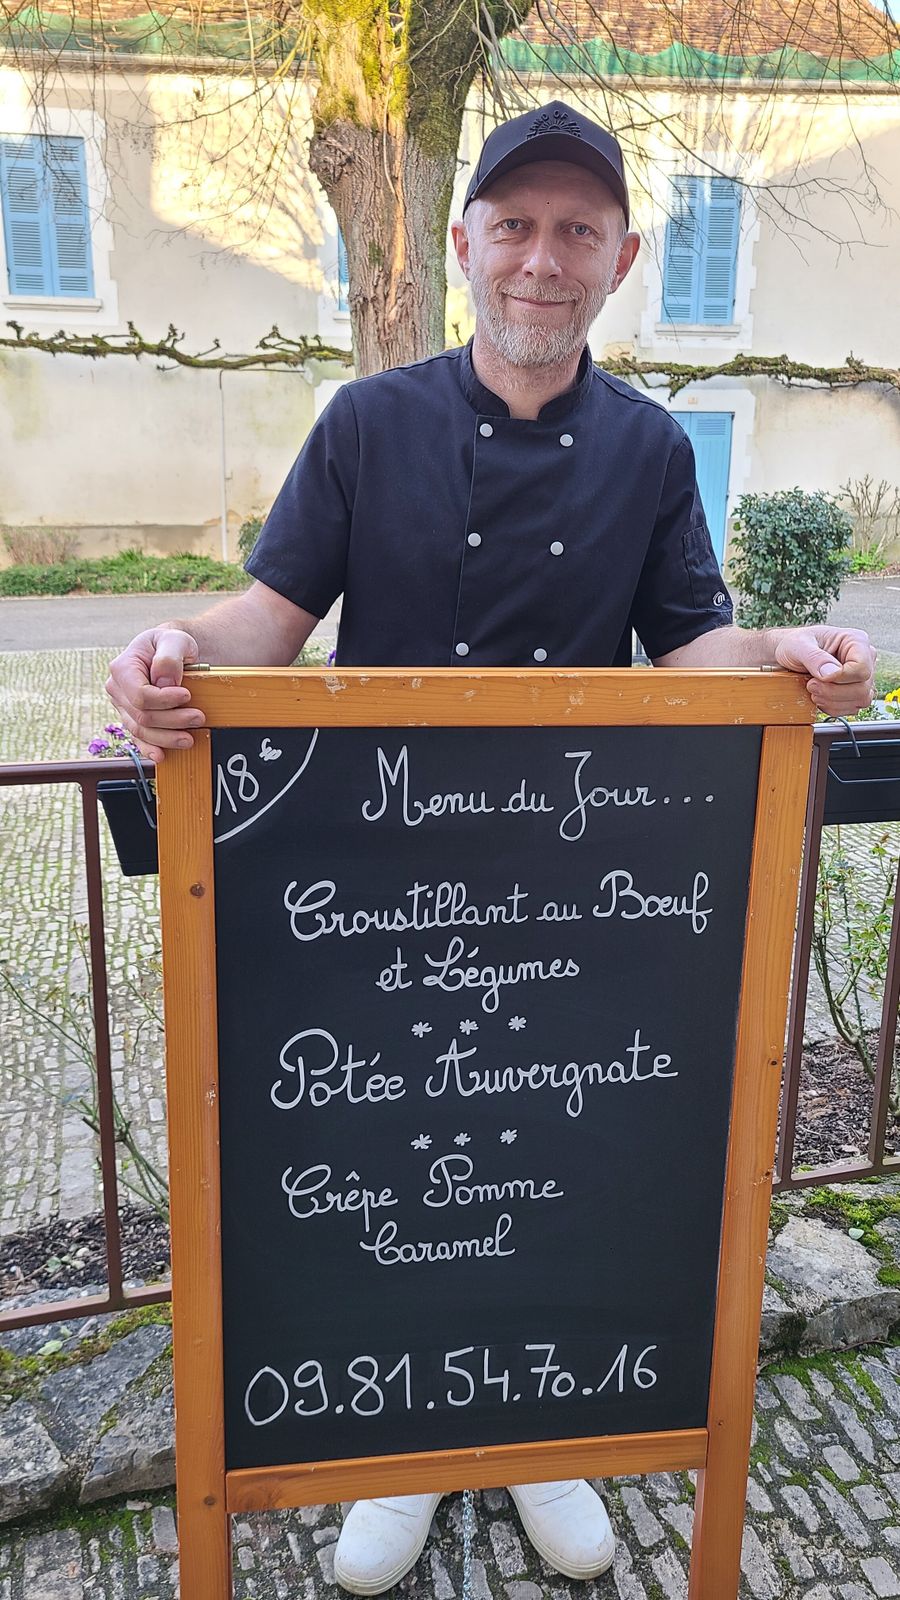 18€
Menu du Jour...
Croustillant au Bœuf
et Légumes
* * *
Potée Auvergnate
* * *
Crêpe Pomme
Caramel
09.81.54.70.16